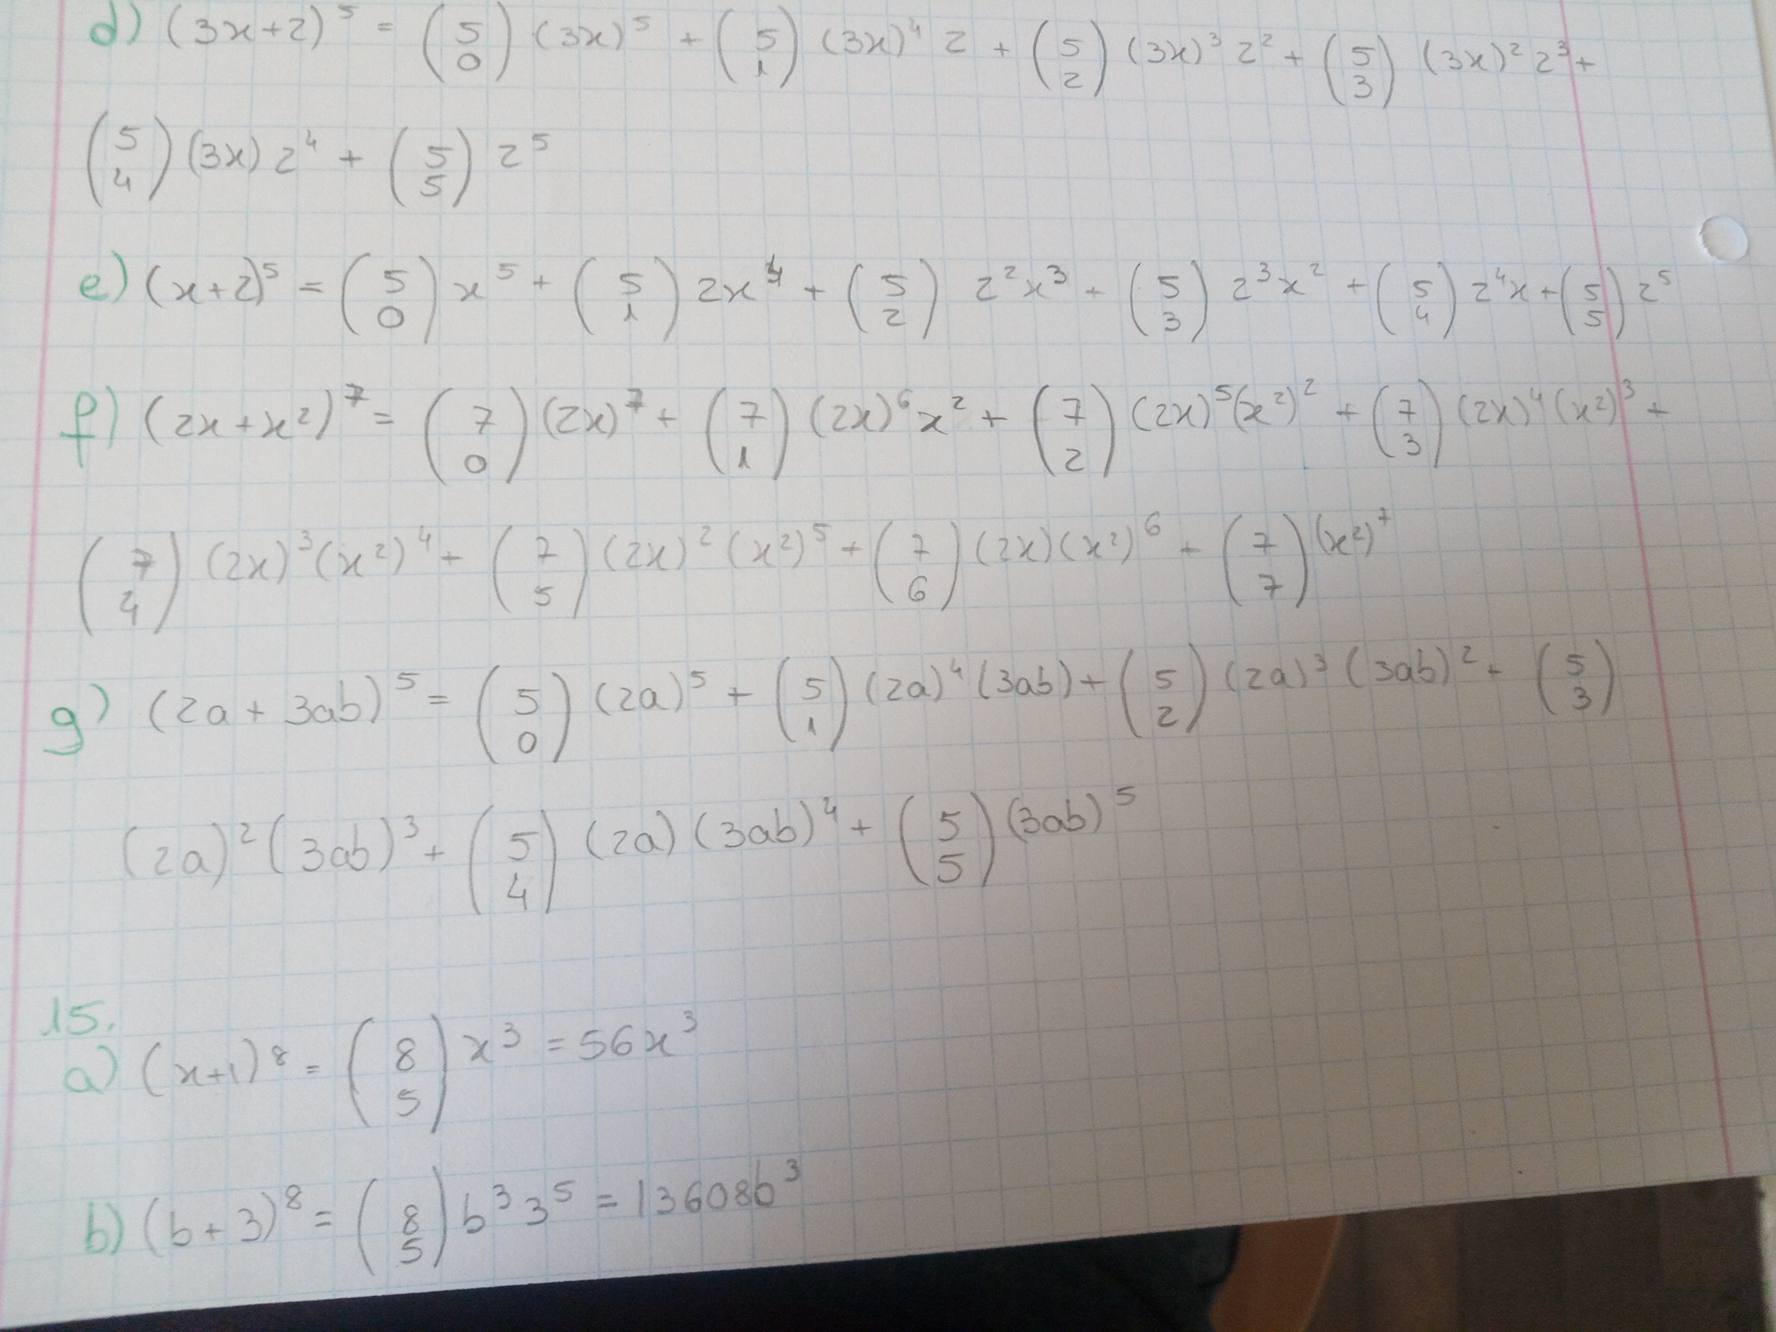 d) (3x+2)⁵ = (5 0) (3x)⁵ + (5 1) (3x)⁴ 2 + (5 2) (3x)³ 2² + (5 3) (3x)² 2³ +
(5 4) (3x) 2⁴ + (5 5) 2⁵
e) (x+2)⁵ = (5 0) x⁵ + (5 1) 2x⁴ + (5 2) 2²x³ + (5 3) 2³x² + (5 4) 2⁴x + (5 5) 2⁵
f) (2x+x²)⁷ = (7 0) (2x)⁷ + (7 1) (2x)⁶x² + (7 2) (2x)⁵(x²)² + (7 3) (2x)⁴(x²)³ +
(7 4) (2x)³(x²)⁴ + (7 5) (2x)²(x²)⁵ + (7 6) (2x)(x²)⁶ + (7 7) (x²)⁷
g) (2a+3ab)⁵ = (5 0) (2a)⁵ + (5 1) (2a)⁴(3ab) + (5 2) (2a)³(3ab)² + (5 3)
(2a)²(3ab)³ + (5 4) (2a)(3ab)⁴ + (5 5) (3ab)⁵
15.
a) (x+1)⁸ = (8 5) x³ = 56x³
b) (b+3)⁸ = (8 5) b³3⁵ = 13608b³